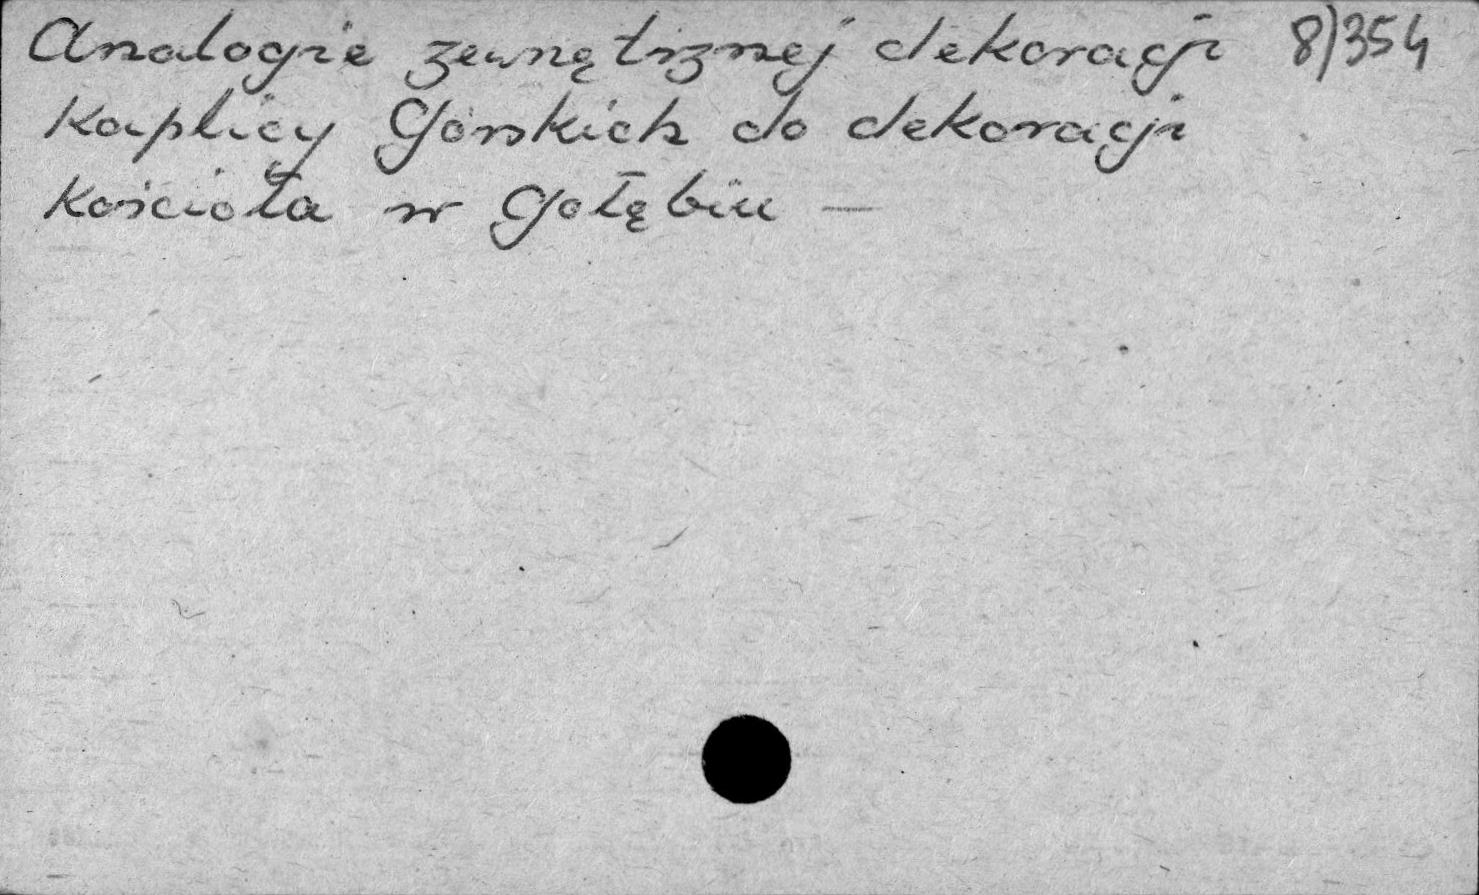 Analogie zewnętrznej dekoracji 8)354
Kaplicy Górskich do dekoracji
Kościoła w Gołębiu —